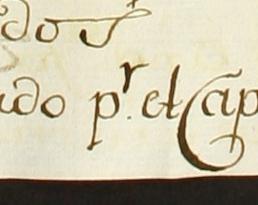 do S
ado p.r el Cap